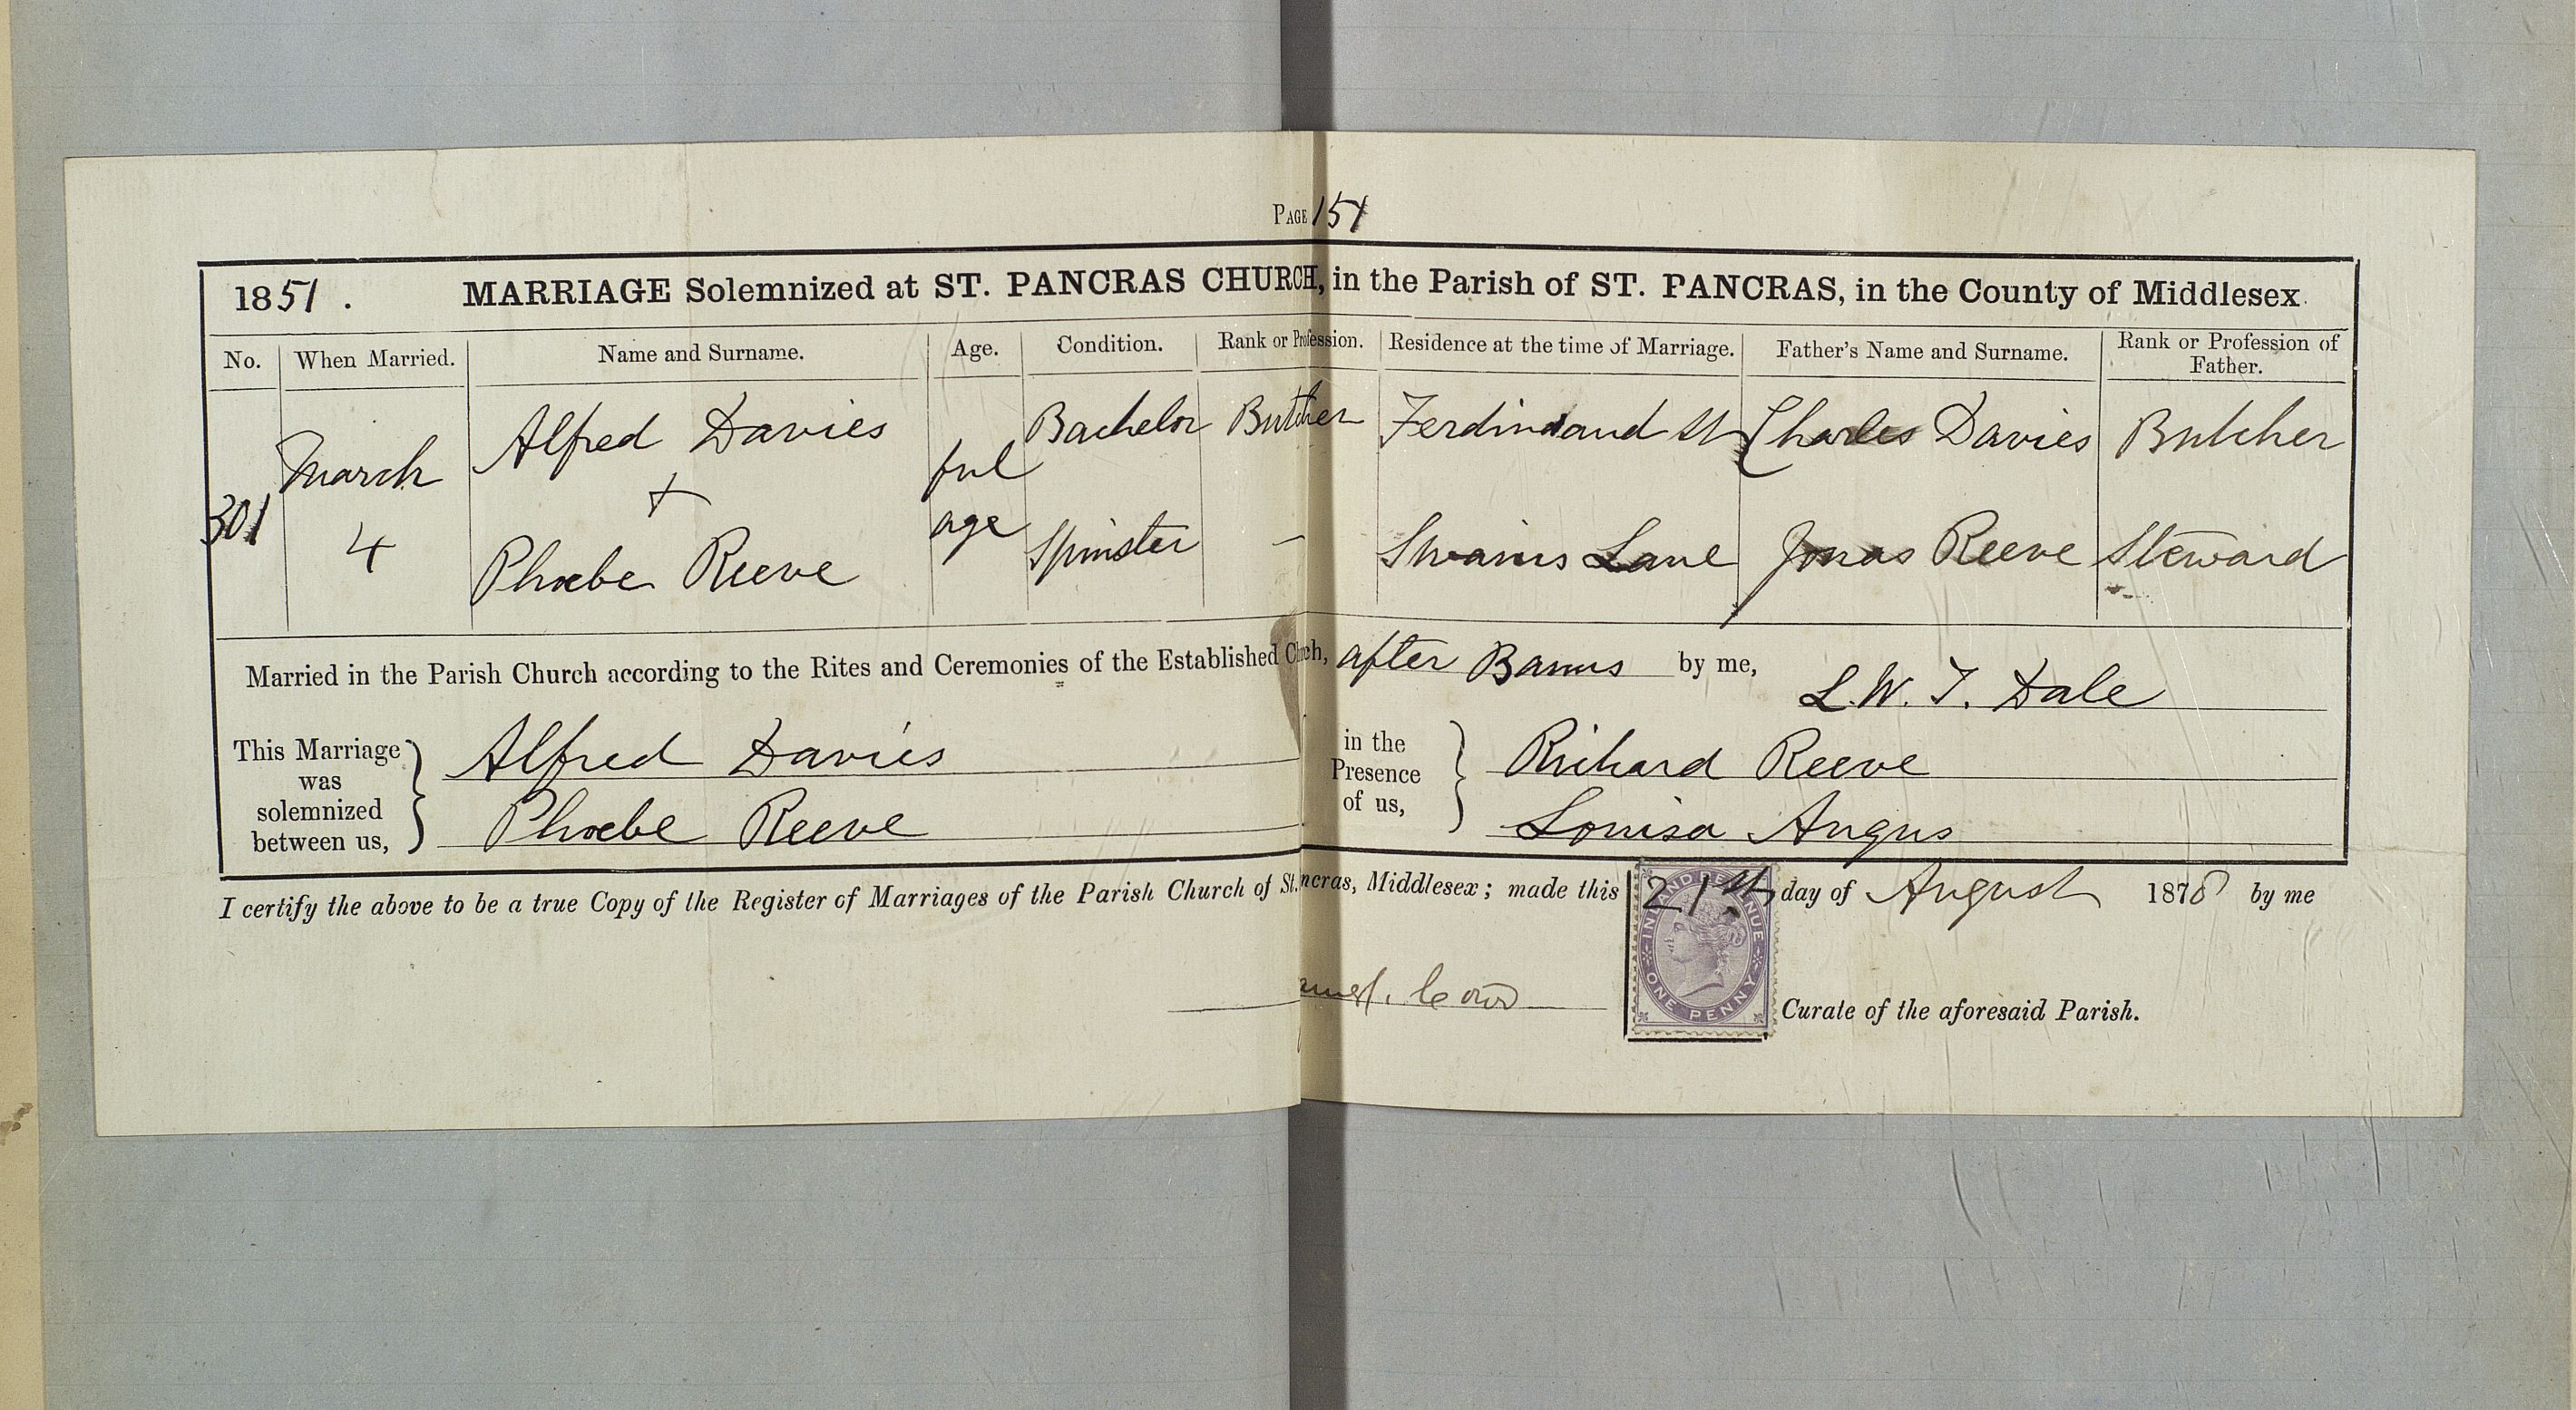 PAGE 151
1851. MARRIAGE Solemnized at ST. PANCRAS CHURCH, in the Parish of ST. PANCRAS, in the County of Middlesex.
No. When Married. Name and Surname. Age. Condition. Rank or Profession. Residence at the time of Marriage. Father's Name and Surname. Rank or Profession of Father.
301 March 4 Alfred Davies ful age Bachelor Butcher Ferdindand St Charles Davies Butcher
+
Phoebe Reeve Spinster – Swains Lane Jonas Reeve Steward
Married in the Parish Church according to the Rites and Ceremonies of the Established Church, after Banns by me,
L. W. T. Dale
This Marriage was solemnized between us,
Alfred Davies
Phoebe Reeve
in the Presence of us,
Richard Reeve
Louisa Angus
I certify the above to be a true Copy of the Register of Marriages of the Parish Church of St. ncras, Middlesex; made this 21st day of August 1878 by me
INLAND REVENUE
ONE PENNY
Curate of the aforesaid Parish.